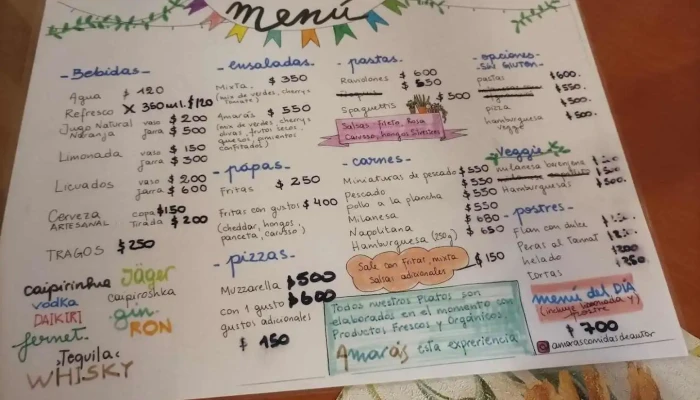 menú
- Bebidas -
Agua $ 120
Refresco X 350 ml. $120
Jugo Natural vaso $ 200
Naranja jarra $ 500
Limonada vaso $ 150
jarra $ 300
Licuados vaso $ 200
jarra $ 600
Cerveza copa $150
ARTESANAL Tirada $ 200
TRAGOS $ 250
caipirinha Jäger
vodka caipiroshka
DAIKIRI gin
fernet. RON
Tequila
WHISKY
- ensaladas -
Mixta $ 350
(mix de verdes, cherrys
Tomate)
Amarás $ 550
(mix de verdes, cherrys
olivas, frutos secos,
quesos, pimientos
confitados)
- papas -
Fritas $ 250
Fritas con gustos $ 400
(cheddar, hongos
panceta, caruso)
- pizzas -
Muzzarella $500
con 1 gusto $600
gustos adicionales
$ 150
- pastas -
Raviolones $ 600
$ 550
Spaguettis $ 500
Salsas - fileto, Rosa
Caruso, hongos Silvestres
- carnes -
Miniaturas de pescado $550
Pescado $ 550
pollo a la plancha $550
Milanesa $ 550
Napolitana $ 680
Hamburguesa (250g) $ 650
Sale con fritas, mixta
Salsas adicionales $ 150
Todos nuestros Platos son
elaborados en el momento con
Productos Frescos y Orgánicos.
Amarás esta experiencia
- opciones -
- SIN GLUTEN -
pastas $600.
$550.
pizza $500.
hamburguesa $500.
veggie
Veggie
milanesa berenjena
Hamburguesas $500.
- postres -
Flan con dulce
Peras al Tannat
helado $200
tortas $250
menú del DÍA
(incluye limonada y
postre
$ 700
amarascomidasdeautor